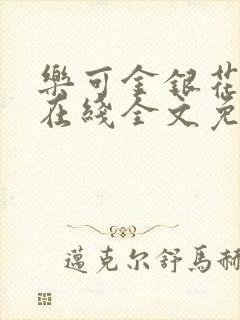 樂可金銀花
在綫全文免
邁克尔舒馬赫